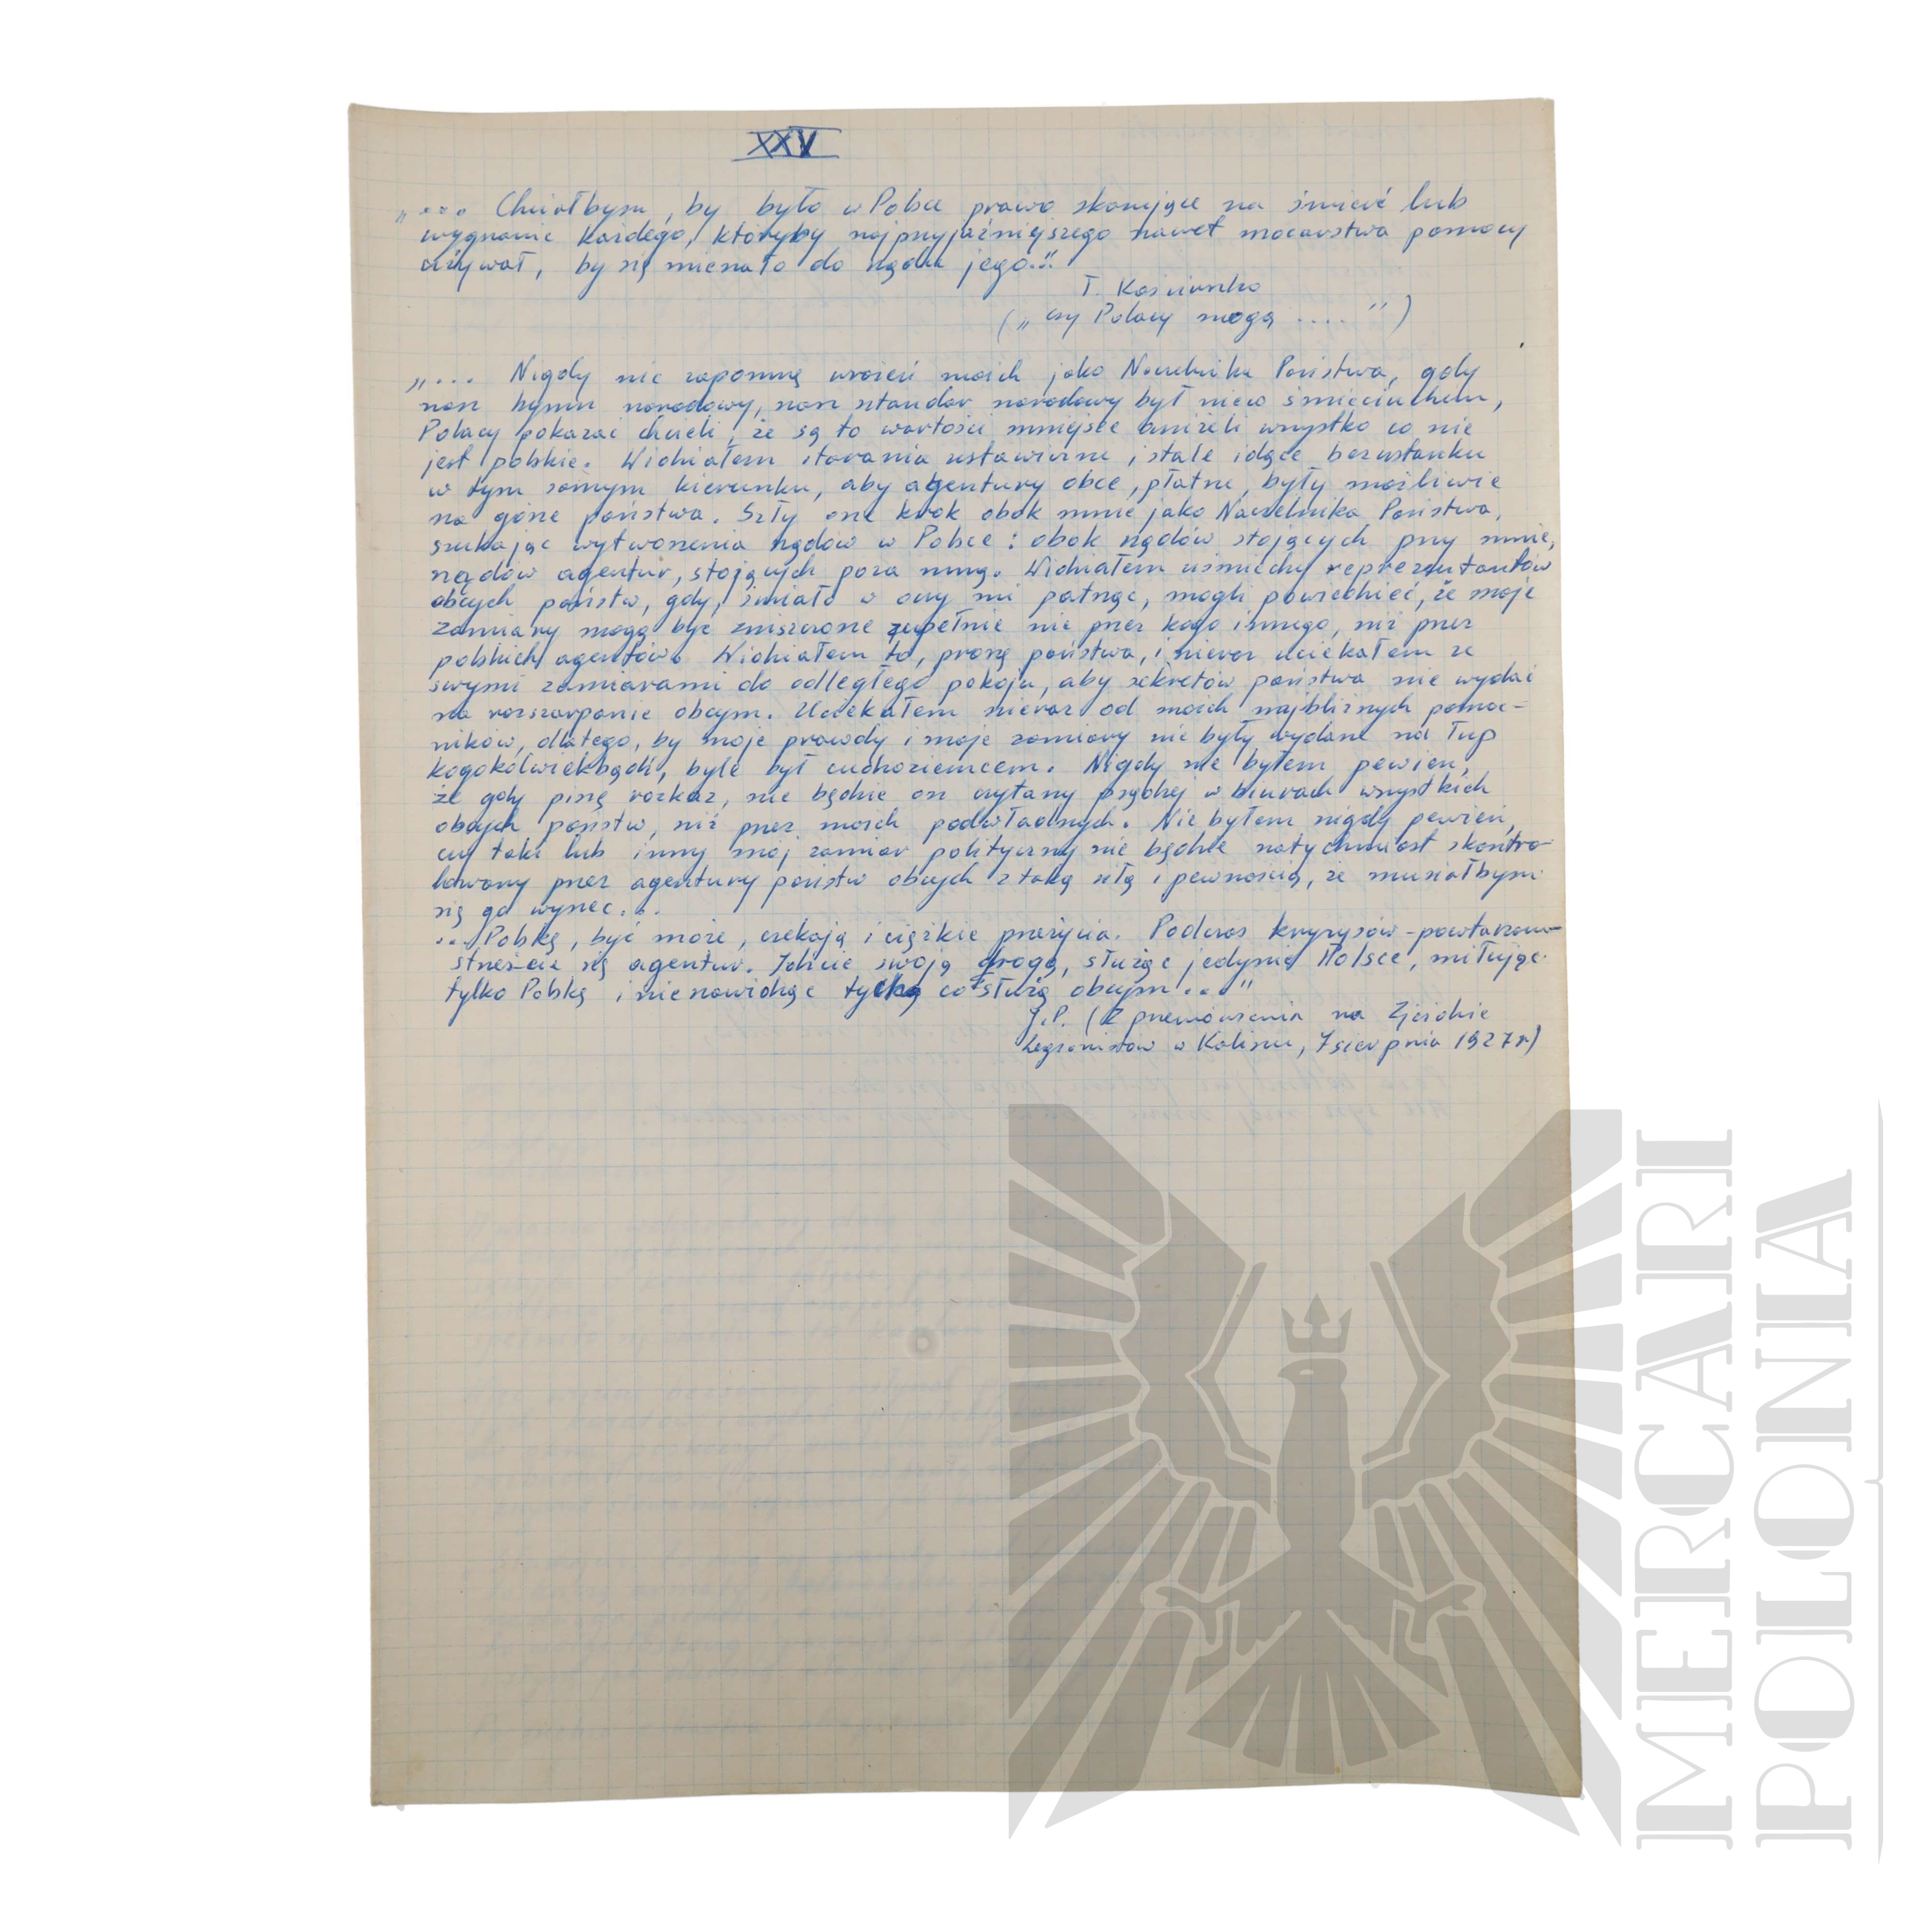 XXV
"... Chciałbym, by było w Polsce prawo skazujące na śmierć lub
wygnanie każdego, któryby najprzyjaźniejszego nawet mocarstwa pomocy
używał, by się mieszało do rządu jego..."
T. Kościuszko
("czy Polacy mogą ....")
"... Nigdy nie zapomnę wrażeń moich jako Naczelnika Państwa, gdy
nasz hymn narodowy, nasz sztandar narodowy był niew śmieciuchem,
Polacy pokazać chcieli, że są to wartości mniejsze aniżeli wszystko co nie
jest polskie. Widziałem starania ustawiczne i stale idące bezustanku
w tym samym kierunku, aby agentury obce, płatne, były możliwie
na górze państwa. Szły one krok obok mnie jako Naczelnika Państwa,
szukając wytworzenia rządów w Polsce: obok rządów stojących przy mnie,
rządów agentur, stojących poza mną. Widziałem uśmiechy reprezentantów
obcych państw, gdy, śmiało w oczy mi patrząc, mogli powiedzieć, że moje
zamiary mogą być zniszczone zupełnie nie przez kogo innego, niż przez
polskich agentów. Widziałem to, proszę państwa, i nieraz uciekałem ze
swymi zamiarami do odległego pokoju, aby sekretów państwa nie wydać
na rozszarpanie obcym. Uciekałem nieraz od moich najbliższych pomoc-
ników, dlatego, by moje prawdy i moje zamiary nie były wydane na łup
kogokolwiekbądź, byle był cudzoziemcem. Nigdy nie byłem pewien,
że gdy piszę rozkaz, nie będzie on czytany prędzej w biurach wszystkich
obcych państw, niż przez moich podwładnych. Nie byłem nigdy pewien,
czy taki lub inny mój zamiar polityczny nie będzie natychmiast skontro-
lowany przez agentury państw obcych z taką siłą i pewnością, że musiałbym
się go wyrzec...
... Polskę, być może, czekają i ciężkie przeżycia. Podczas kryzysów - powtarzam -
strzeżcie się agentur. Idźcie swoją drogą, służąc jedynie Polsce, miłując
tylko Polskę i nienawidząc tych co służą obcym..."
J.P. (Z przemówienia na Zjeździe
Legionistów w Kaliszu, 7 sierpnia 1927 r)
MERCARI
POLONIA